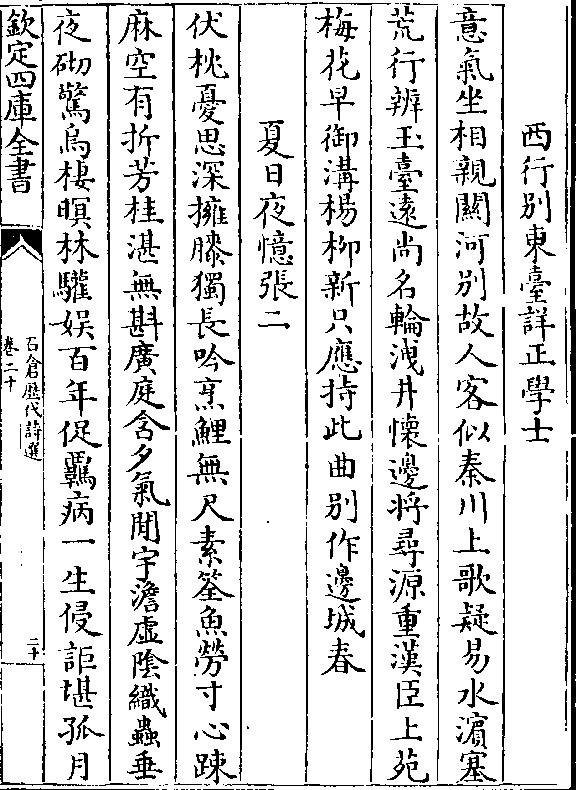 西行别東臺詳正學士
意氣坐相親關河别故人客似秦川上歌疑易水濵塞
荒行辨玉臺逺尚名輪洩井懐邊將尋源重漢臣上苑
梅花早御溝楊栁新只應持此曲别作邊城春
夏日夜憶張二
伏枕憂思深擁膝獨長吟烹鯉無尺素筌魚勞寸心踈
麻空有折芳桂湛無斟廣庭含夕氣閒宇澹虛陰織蟲垂
夜砌驚烏棲暝林驩娱百年促羈病一生侵詎堪孤月
欽定四庫全書
石倉歴代詩選
卷二十
二十